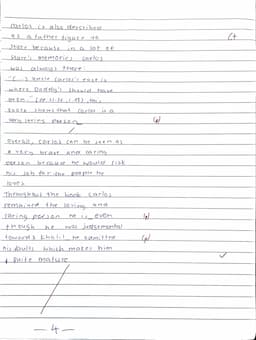 Carlos is also described
as a father figure to
Starr because in a lot of
Starr's memories Carlos
was always there
"(...) Uncle Carlos's face is
where Daddy's should have
been." this
quote shows that Carlos is a
very loving person
Overall, Carlos can be seen as
a very brave and caring
person because he would risk
his job for the people he
loves
Throughout the book Carlos
remained the loving and
caring person he is even
though he was judgemental
towards Khalil he admitted
his faults which makes him
quite mature
— 4 —